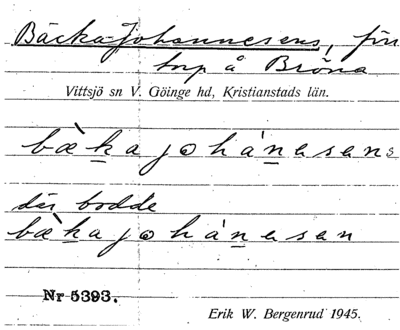 Bäcka-Johannesens, förr
torp å Bröna
Vittsjö sn V. Göinge hd, Kristianstads län.
bæ̀ka johánesens
där bodde
bæ̀ka johánesen
Nr 5393.
Erik W. Bergenrud 1945.